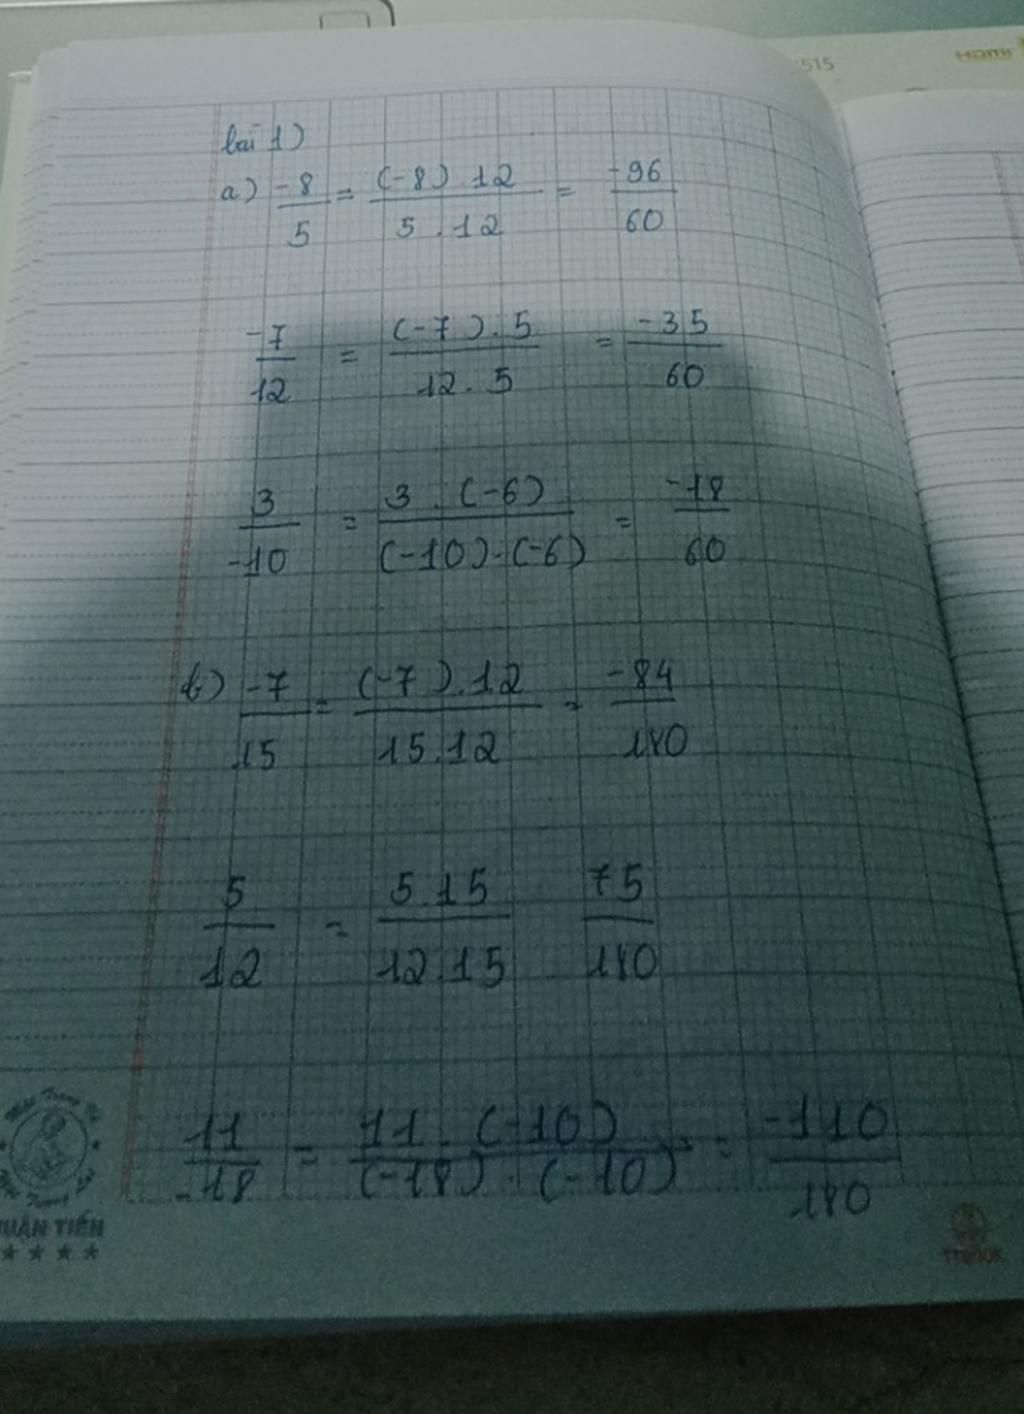 515
HDMI
bài 1)
a) -8/5 = (-8).12/5.12 = -96/60
-7/12 = (-7).5/12.5 = -35/60
3/-10 = 3.(-6)/(-10).(-6) = -18/60
b) -7/15 = (-7).12/15.12 = -84/180
5/12 = 5.15/12.15 75/180
11/-18 = 11.(-10)/(-18).(-10) = -110/180
UẬN TIẾN